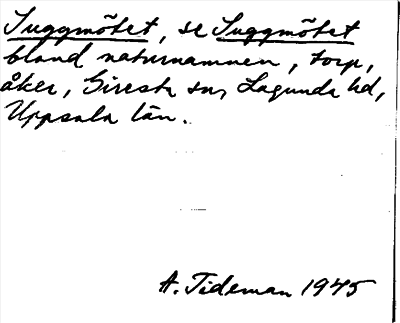 Suggmötet, se Suggmötet
bland naturnamnen, torp,
åker, Giresta sn, Lagunda hd,
Uppsala län.
A. Tideman 1945